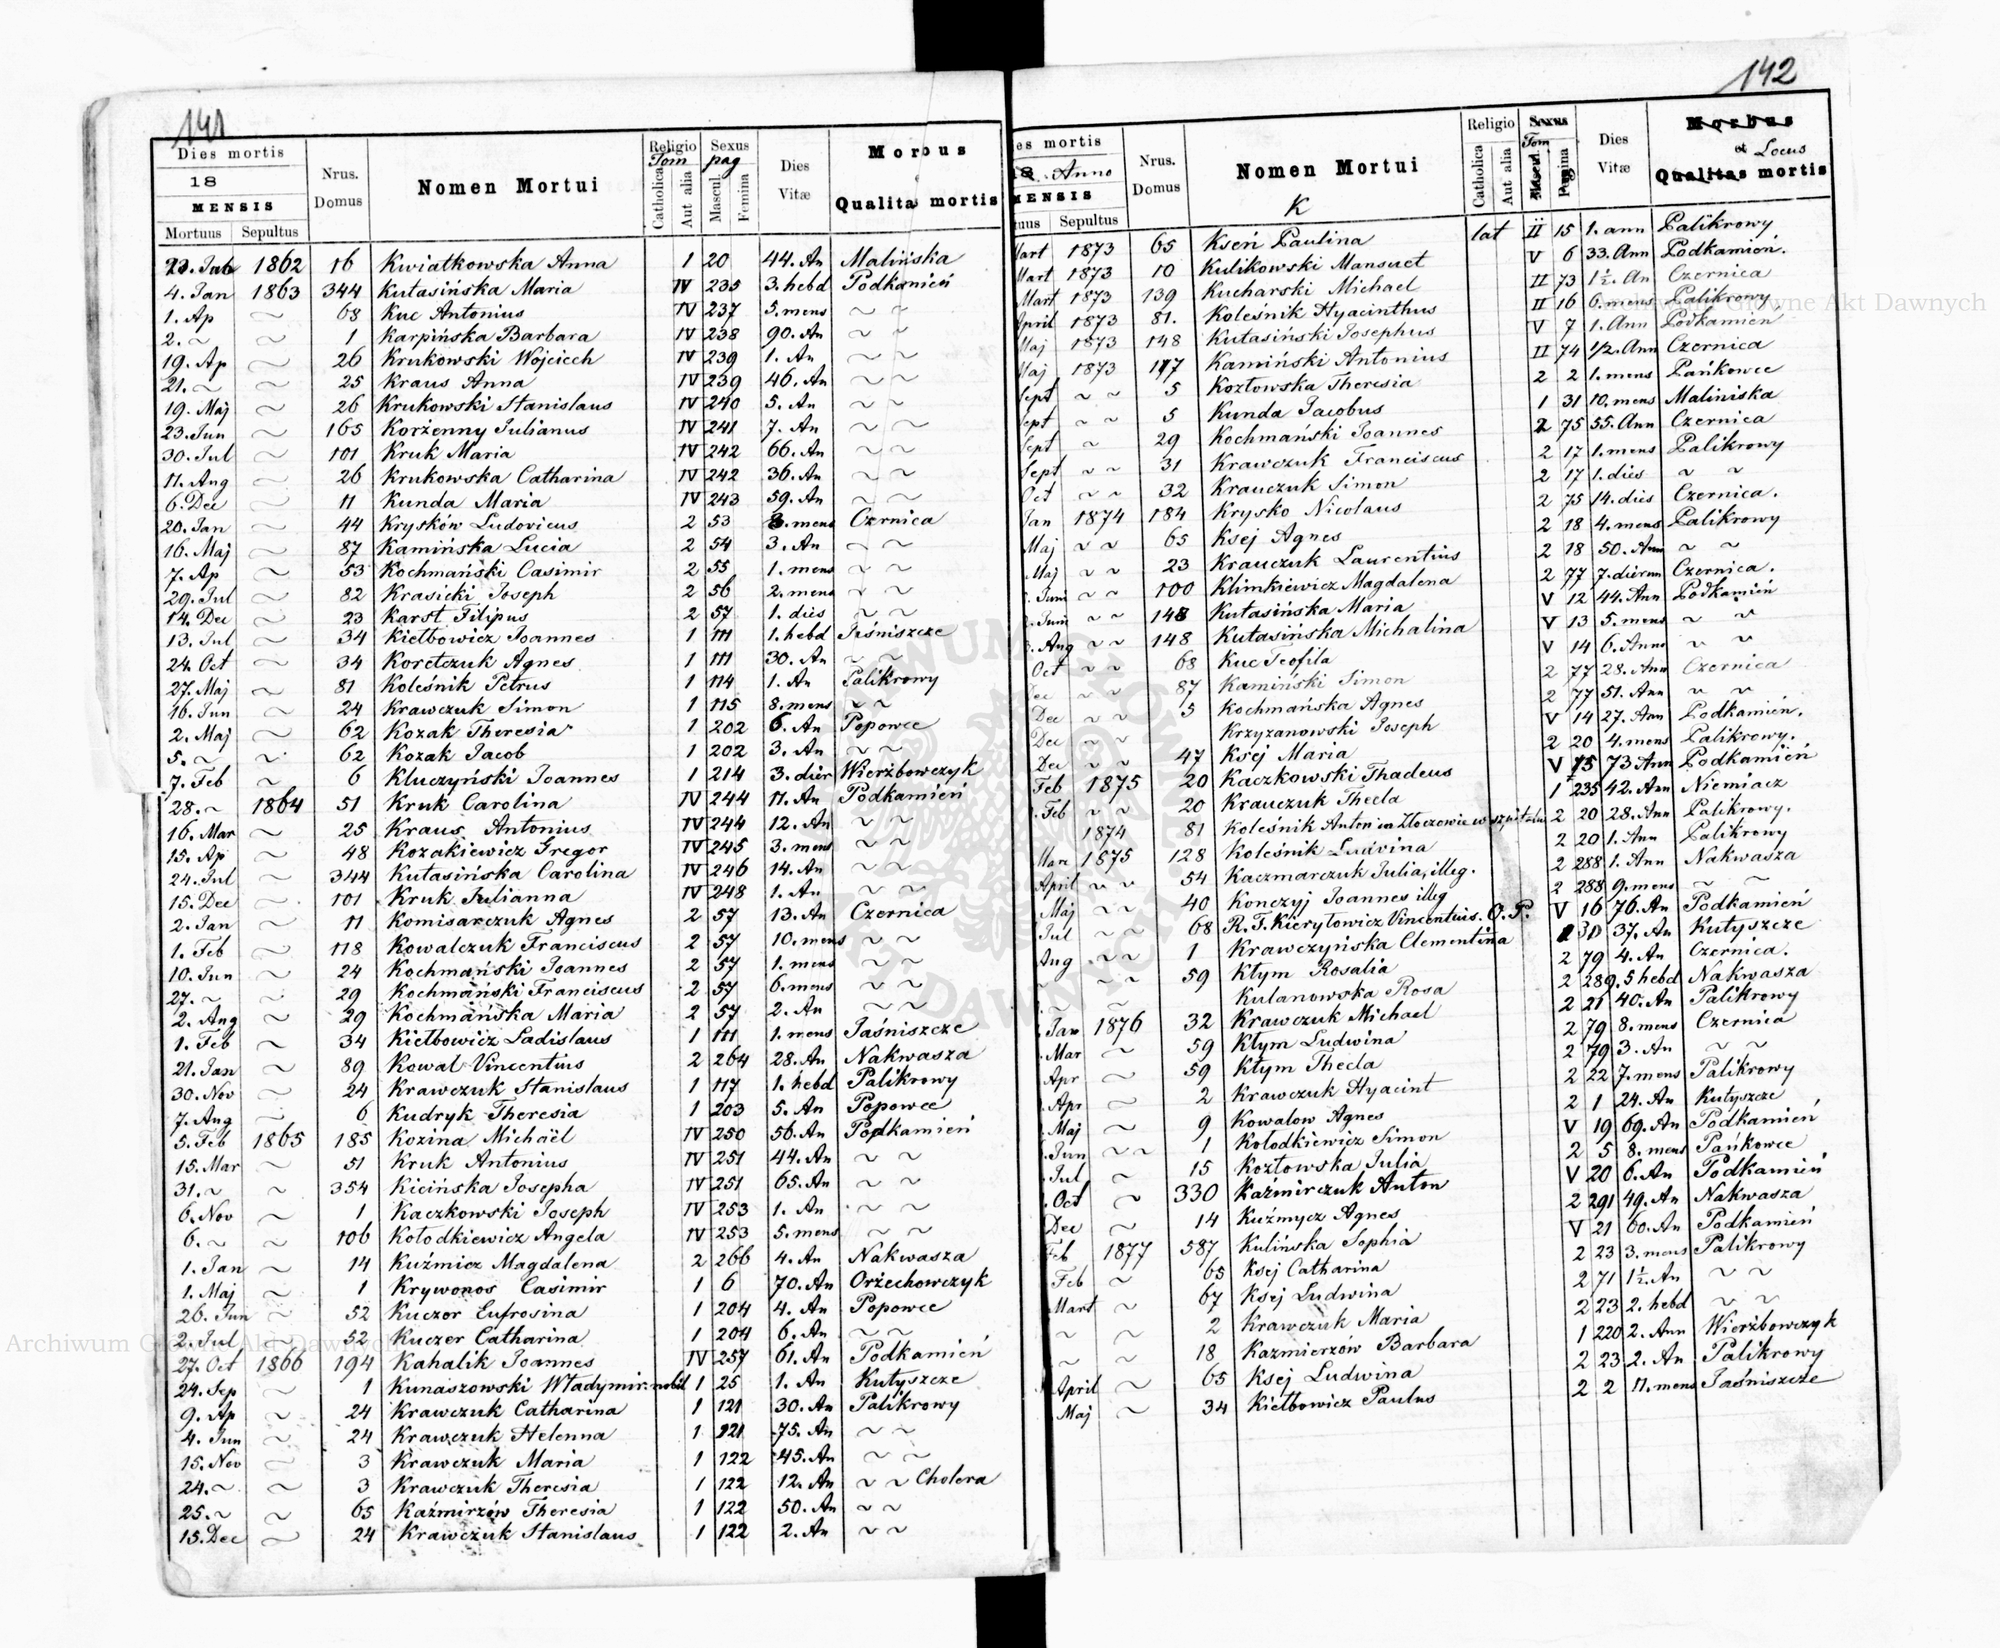 141
Dies mortis
18
MENSIS
Mortuus Sepultus
Nrus. Domus
Nomen Mortui
Religio Tom
Catholica Aut alia
Sexus pag
Mascul. Femina
Dies Vitæ
Morbus
Qualitas mortis
1862 16 Kwiatkowska Anna 1 20 44. An Malińska
4. Jan 1863 344 Kutasińska Maria IV 235 3. hebd Podkamień
1. Ap ~ 68 Kuc Antonius IV 237 5. mens ~ ~
2. ~ ~ 1 Karpińska Barbara IV 238 90. An ~ ~
19. Ap ~ 26 Krukowski Wojciech IV 239 1. An ~ ~
21. ~ ~ 25 Kraus Anna IV 239 46. An ~ ~
19. Maj ~ 26 Krukowski Stanislaus IV 240 5. An ~ ~
23. Jun ~ 165 Korżenny Julianus IV 241 7. An ~ ~
30. Jul ~ 101 Kruk Maria IV 242 66. An ~ ~
11. Aug ~ 26 Krukowska Catharina IV 242 36. An ~ ~
6. Dec ~ 11 Kunda Maria IV 243 59. An ~ ~
20. Jan ~ 44 Krysków Ludovicus 2 53 mens Czrnica
16. Maj ~ 87 Kamińska Lucia 2 54 3. An ~ ~
7. Ap ~ 53 Kochmański Casimir 2 55 1. mens ~ ~
29. Jul ~ 82 Krasicki Joseph 2 56 2. mens ~ ~
14. Dec ~ 23 Karst Filipus 2 57 1. dies ~ ~
13. Jul ~ 34 Kiełbowicz Joannes 1 111 1. hebd Jaśniszcze
24. Oct ~ 34 Koretczuk Agnes 1 111 30. An ~ ~
27. Maj ~ 81 Koleśnik Petrus 1 114 1. An Palikrowy
16. Jun ~ 24 Krawczuk Simon 1 115 8. mens ~ ~
2. Maj ~ 62 Kozak Theresia 1 202 6. An Popowce
5. ~ ~ 62 Kozak Jacob 1 202 3. An ~ ~
7. Feb ~ 6 Kluczyński Joannes 1 214 3. dier Wierżbowczyk
28. ~ 1864 51 Kruk Carolina IV 244 11. An Podkamień
16. Mar ~ 25 Kraus Antonius IV 244 12. An ~ ~
15. Ap ~ 48 Kozakiewicz Gregor IV 245 3. mens ~ ~
24. Jul ~ 344 Kutasińska Carolina IV 246 14. An ~ ~
15. Dec ~ 101 Kruk Julianna IV 248 1. An ~ ~
2. Jan ~ 11 Komisarczuk Agnes 2 57 13. An Czernica
1. Feb ~ 118 Kowalczuk Franciscus 2 57 10. mens ~ ~
10. Jun ~ 24 Kochmański Joannes 2 57 1. mens ~ ~
27. ~ ~ 29 Kochmański Franciscus 2 57 6. mens ~ ~
2. Aug ~ 29 Kochmańska Maria 2 57 2. An ~ ~
1. Feb ~ 34 Kiełbowicz Ladislaus 1 111 1. mens Jaśniszcze
21. Jan ~ 89 Kowal Vincentius 2 264 28. An Nakwasza
30. Nov ~ 24 Krawczuk Stanislaus 1 117 1. hebd Palikrowy
7. Aug ~ 6 Kudryk Theresia 1 203 5. An Popowce
5. Feb 1865 185 Kozina Michaël IV 250 56. An Podkamień
15. Mar ~ 51 Kruk Antonius IV 251 44. An ~ ~
31. ~ ~ 354 Kicińska Josepha IV 251 65. An ~ ~
6. Nov ~ 1 Kaczkowski Joseph IV 253 1. An ~ ~
6. ~ ~ 106 Kołodkiewicz Angela IV 253 5. mens ~ ~
1. Jan ~ 14 Kuźmicz Magdalena 2 266 4. An Nakwasza
1. Maj ~ 1 Krywonos Casimir 1 6 70. An Orżechowczyk
26. Jun ~ 52 Kuczer Eufrosina 1 204 4. An Popowce
2. Jul ~ 52 Kuczer Catharina 1 204 6. An ~ ~
27. Oct 1866 194 Kahalik Joannes IV 257 61. An Podkamień
24. Sep ~ 1 Kunaszowski Władymir nobil 1 25 1. An Kutyszcze
9. Ap ~ 24 Krawczuk Catharina 1 121 30. An Palikrowy
4. Jun ~ 24 Krawczuk Helenna 1 121 75. An ~ ~
15. Nov ~ 3 Krawczuk Maria 1 122 45. An ~ ~
24. ~ ~ 3 Krawczuk Theresia 1 122 12. An ~ ~ Cholera
25. ~ ~ 65 Kaźmirzów Theresia 1 122 50. An ~ ~
15. Dec ~ 24 Krawczuk Stanislaus 1 122 2. An ~ ~
142
es mortis
18 Anno
MENSIS
tuus Sepultus
Nrus. Domus
Nomen Mortui
K
Religio
Catholica Aut alia
Sexus
Mascul. Tom Femina
Dies Vitæ
Morbus
et Locus
Qualitas mortis
Mart 1873 65 Kseń Paulina lat II 15 1. ann Palikrowy
Mart 1873 10 Kulikowski Mansuet V 6 33. Ann Podkamień.
Mart 1873 139 Kucharski Michael II 73 1½. An Czernica
April 1873 81. Koleśnik Hyacinthus II 16 6. mens Palikrowy
Maj 1873 148 Kutasiński Josephus V 7 1. Ann Podkamień
Maj 1873 117 Kamiński Antonius II 74 1/2. Ann Czernica
Sept ~ ~ 5 Kozłowska Theresia 2 2 1. mens Pańkowce
Sept ~ ~ 5 Kunda Jacobus 1 31 10. mens Maliniska
Sept ~ 29 Kochmański Joannes 2 75 55. Ann Czernica
Sept ~ ~ 31 Krawczuk Franciscus 2 17 1. mens Palikrowy
Oct ~ ~ 32 Krauczuk Simon 2 17 1. dies ~ ~
Jan 1874 184 Krysko Nicolaus 2 75 14. dies Czernica.
Maj ~ ~ 65 Ksej Agnes 2 18 4. mens Palikrowy
Maj ~ ~ 23 Krauczuk Laurentius 2 18 50. Ann ~ ~
Juni ~ ~ 100 Klimkiewicz Magdalena 2 77 7. dierum Czernica.
Juni ~ ~ 148 Kutasińska Maria V 12 44. Ann Podkamień
Aug ~ ~ 148 Kutasińska Michalina V 13 5. mens ~ ~
Oct ~ ~ 68 Kuc Teofila V 14 6. Anno ~ ~
Dec ~ ~ 87 Kamiński Simon 2 77 28. Ann Czernica
Dec ~ ~ 5 Kochmańska Agnes 2 77 51. Ann ~ ~
Dec ~ ~ Krzyzanowski Joseph V 14 27. Ann Podkamień.
Dec ~ ~ 47 Ksej Maria 2 20 4. mens Palikrowy.
Feb 1875 20 Kaczkowski Thadeus V 15 73 Ann Podkamień
Feb ~ ~ 20 Krauczuk Thecla 1 235 42. Ann Niemiacz
1874 81 Koleśnik Anton in Złoczowie w szpitalu 2 20 28. Ann Palikrowy.
Mar 1875 128 Koleśnik Ludvina 2 20 1. Ann Palikrowy
April ~ ~ 54 Kaczmarczuk Julia, illeg. 2 288 1. Ann Nakwasza
Maj ~ ~ 40 Konczyj Joannes illeg 2 288 9. mens ~ ~
Jul ~ ~ 68 R. F. Kieryłowicz Vincentius. O. P. V 16 76. An Podkamień
Aug ~ ~ 1 Krawczyńska Clementina 37. An Kutyszcze
~ ~ ~ 59 Kłym Rosalia 2 79 4. An Czernica.
~ ~ Kulanowska Rosa 2 289. 5 hebd Nakwasza
Jan 1876 32 Krawczuk Michael 2 21 40. An Palikrowy
Mar ~ 59 Kłym Ludwina 2 79 8. mens Czernica
Apr ~ 59 Kłym Thecla 2 79 3. An ~ ~
Apr ~ 2 Krawczuk Hyacint 2 22 7. mens Palikrowy
Maj ~ 9 Kowalow Agnes 2 1 24. An Kutyszcze
Jun ~ ~ 1 Kołodkiewicz Simon V 19 69. An Podkamień
Jul ~ 15 Kozłowska Julia 2 5 8. mens Pańkowce
Oct ~ 330 Kaźmirczuk Anton V 20 6. An Podkamień
Dec ~ 14 Kuźmycz Agnes 2 291 49. An Nakwasza
Feb 1877 587 Kulińska Sophia V 21 60. An Podkamień
Feb ~ 65 Ksej Catharina 2 23 3. mens Palikrowy
Mart ~ 67 Ksej Ludwina 2 71 1½. An ~ ~
~ ~ 2 Krawczuk Maria 2 23 2. hebd ~ ~
~ ~ 18 Kazmierzów Barbara 1 220 2. Ann Wierżbowczyk
April ~ 65 Ksej Ludwina 2 23 2. An Palikrowy
Maj ~ 34 Kiełbowicz Paulus 2 2 11. mens Jaśniszcze
Archiwum Główne Akt Dawnych
Archiwum Główne Akt Dawnych
ARCHIWUM GŁÓWNE AKT DAWNYCH